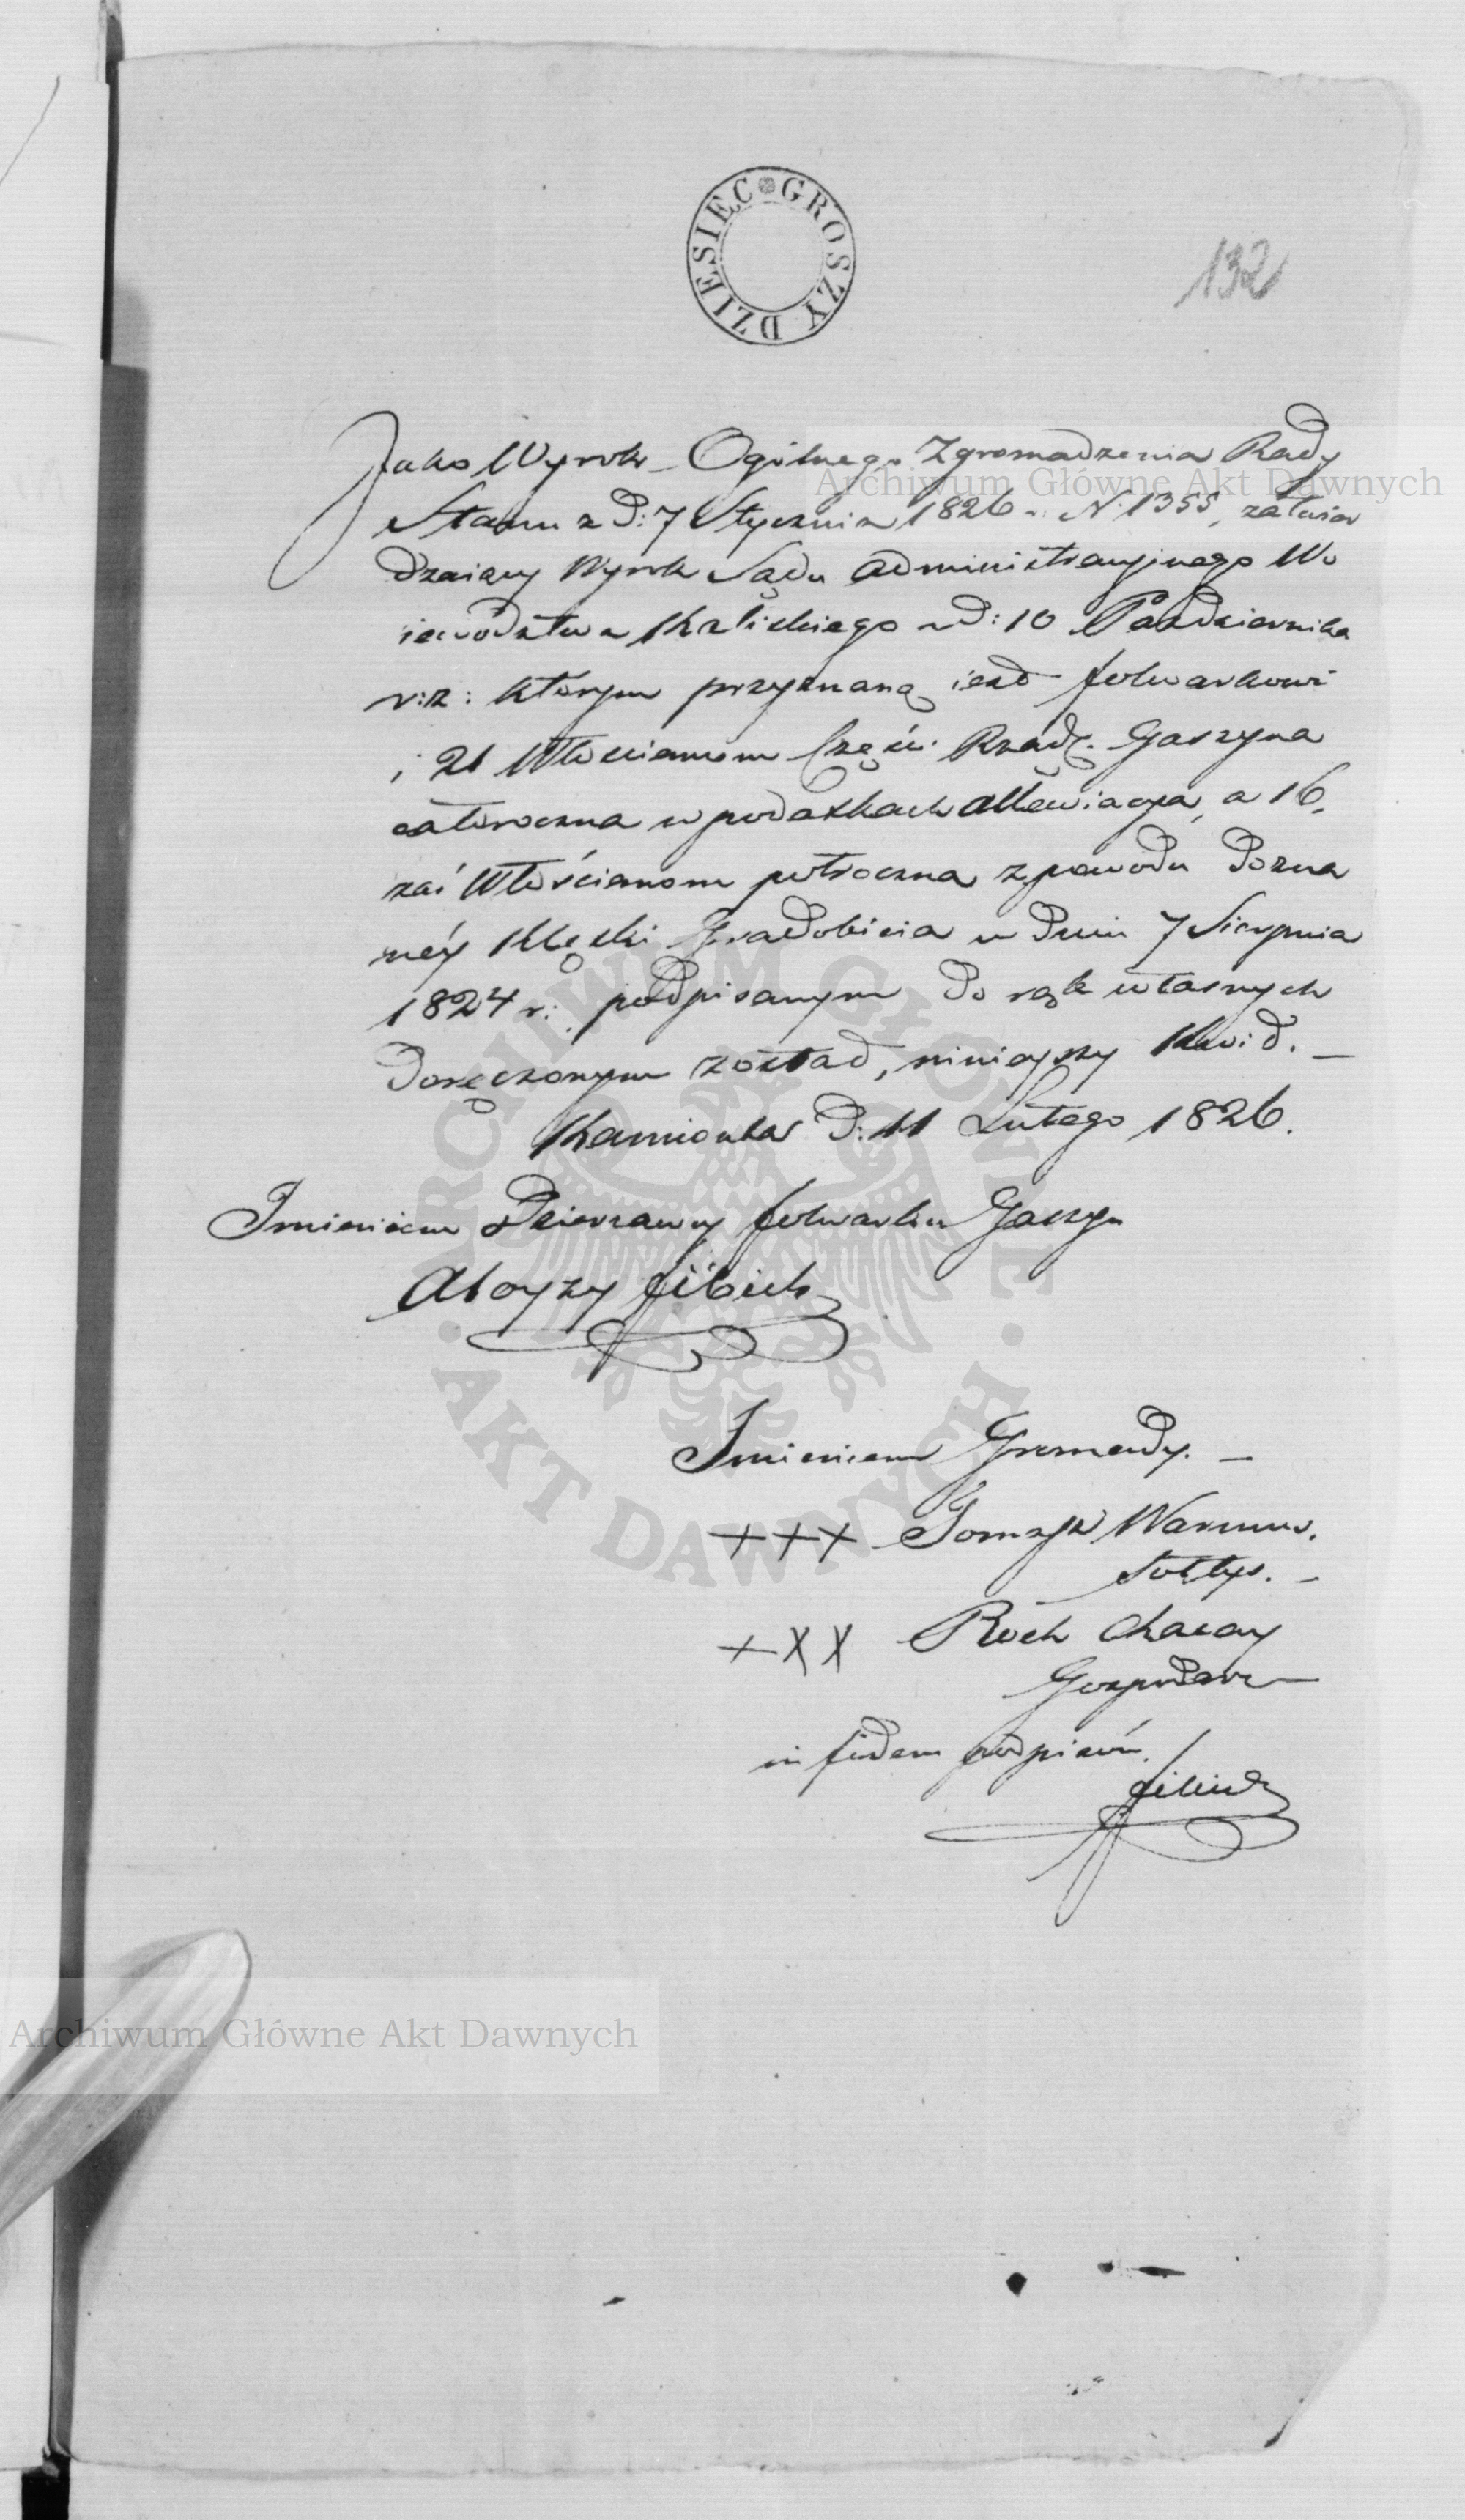 GROSZY DZIESIEC
132
Jako Wyrok Ogólnego Zgromadzenia Rady
Stanu z d: 7 Stycznia 1826 r. N. 1355, zatwier
dzaiący Wyrok Sądu Administracyjnego Wo
iewództwa Kaliskiego z d: 10 Pazdziernika
r: z: którym przyznaną iest folwarkowi
i 21 Włościanom Części Rząd. Gaszyna
całoroczna w podatkach allewiacya, a 16.
zaś Włościanom półroczna z powodu Dozna
néy Klęski Gradobicia w dniu 7 Sierpnia
1824 r: podpisanym do rąk własnych
doręczonym został, ninieyszy Kwid. —
Kamionka d: 11 Lutego 1826.
Imieniem Dzierzawy folwarku Gaszyn
Aloyzy
Imieniem Gromady. —
+++ Tomasz Warmus.
Sołtys. —
+XX Roch
Gospodarz —
in fidem podpisów.
Archiwum Główne Akt Dawnych
ARCHIWUM GŁÓWNE
· AKT DAWNYCH ·
Archiwum Główne Akt Dawnych